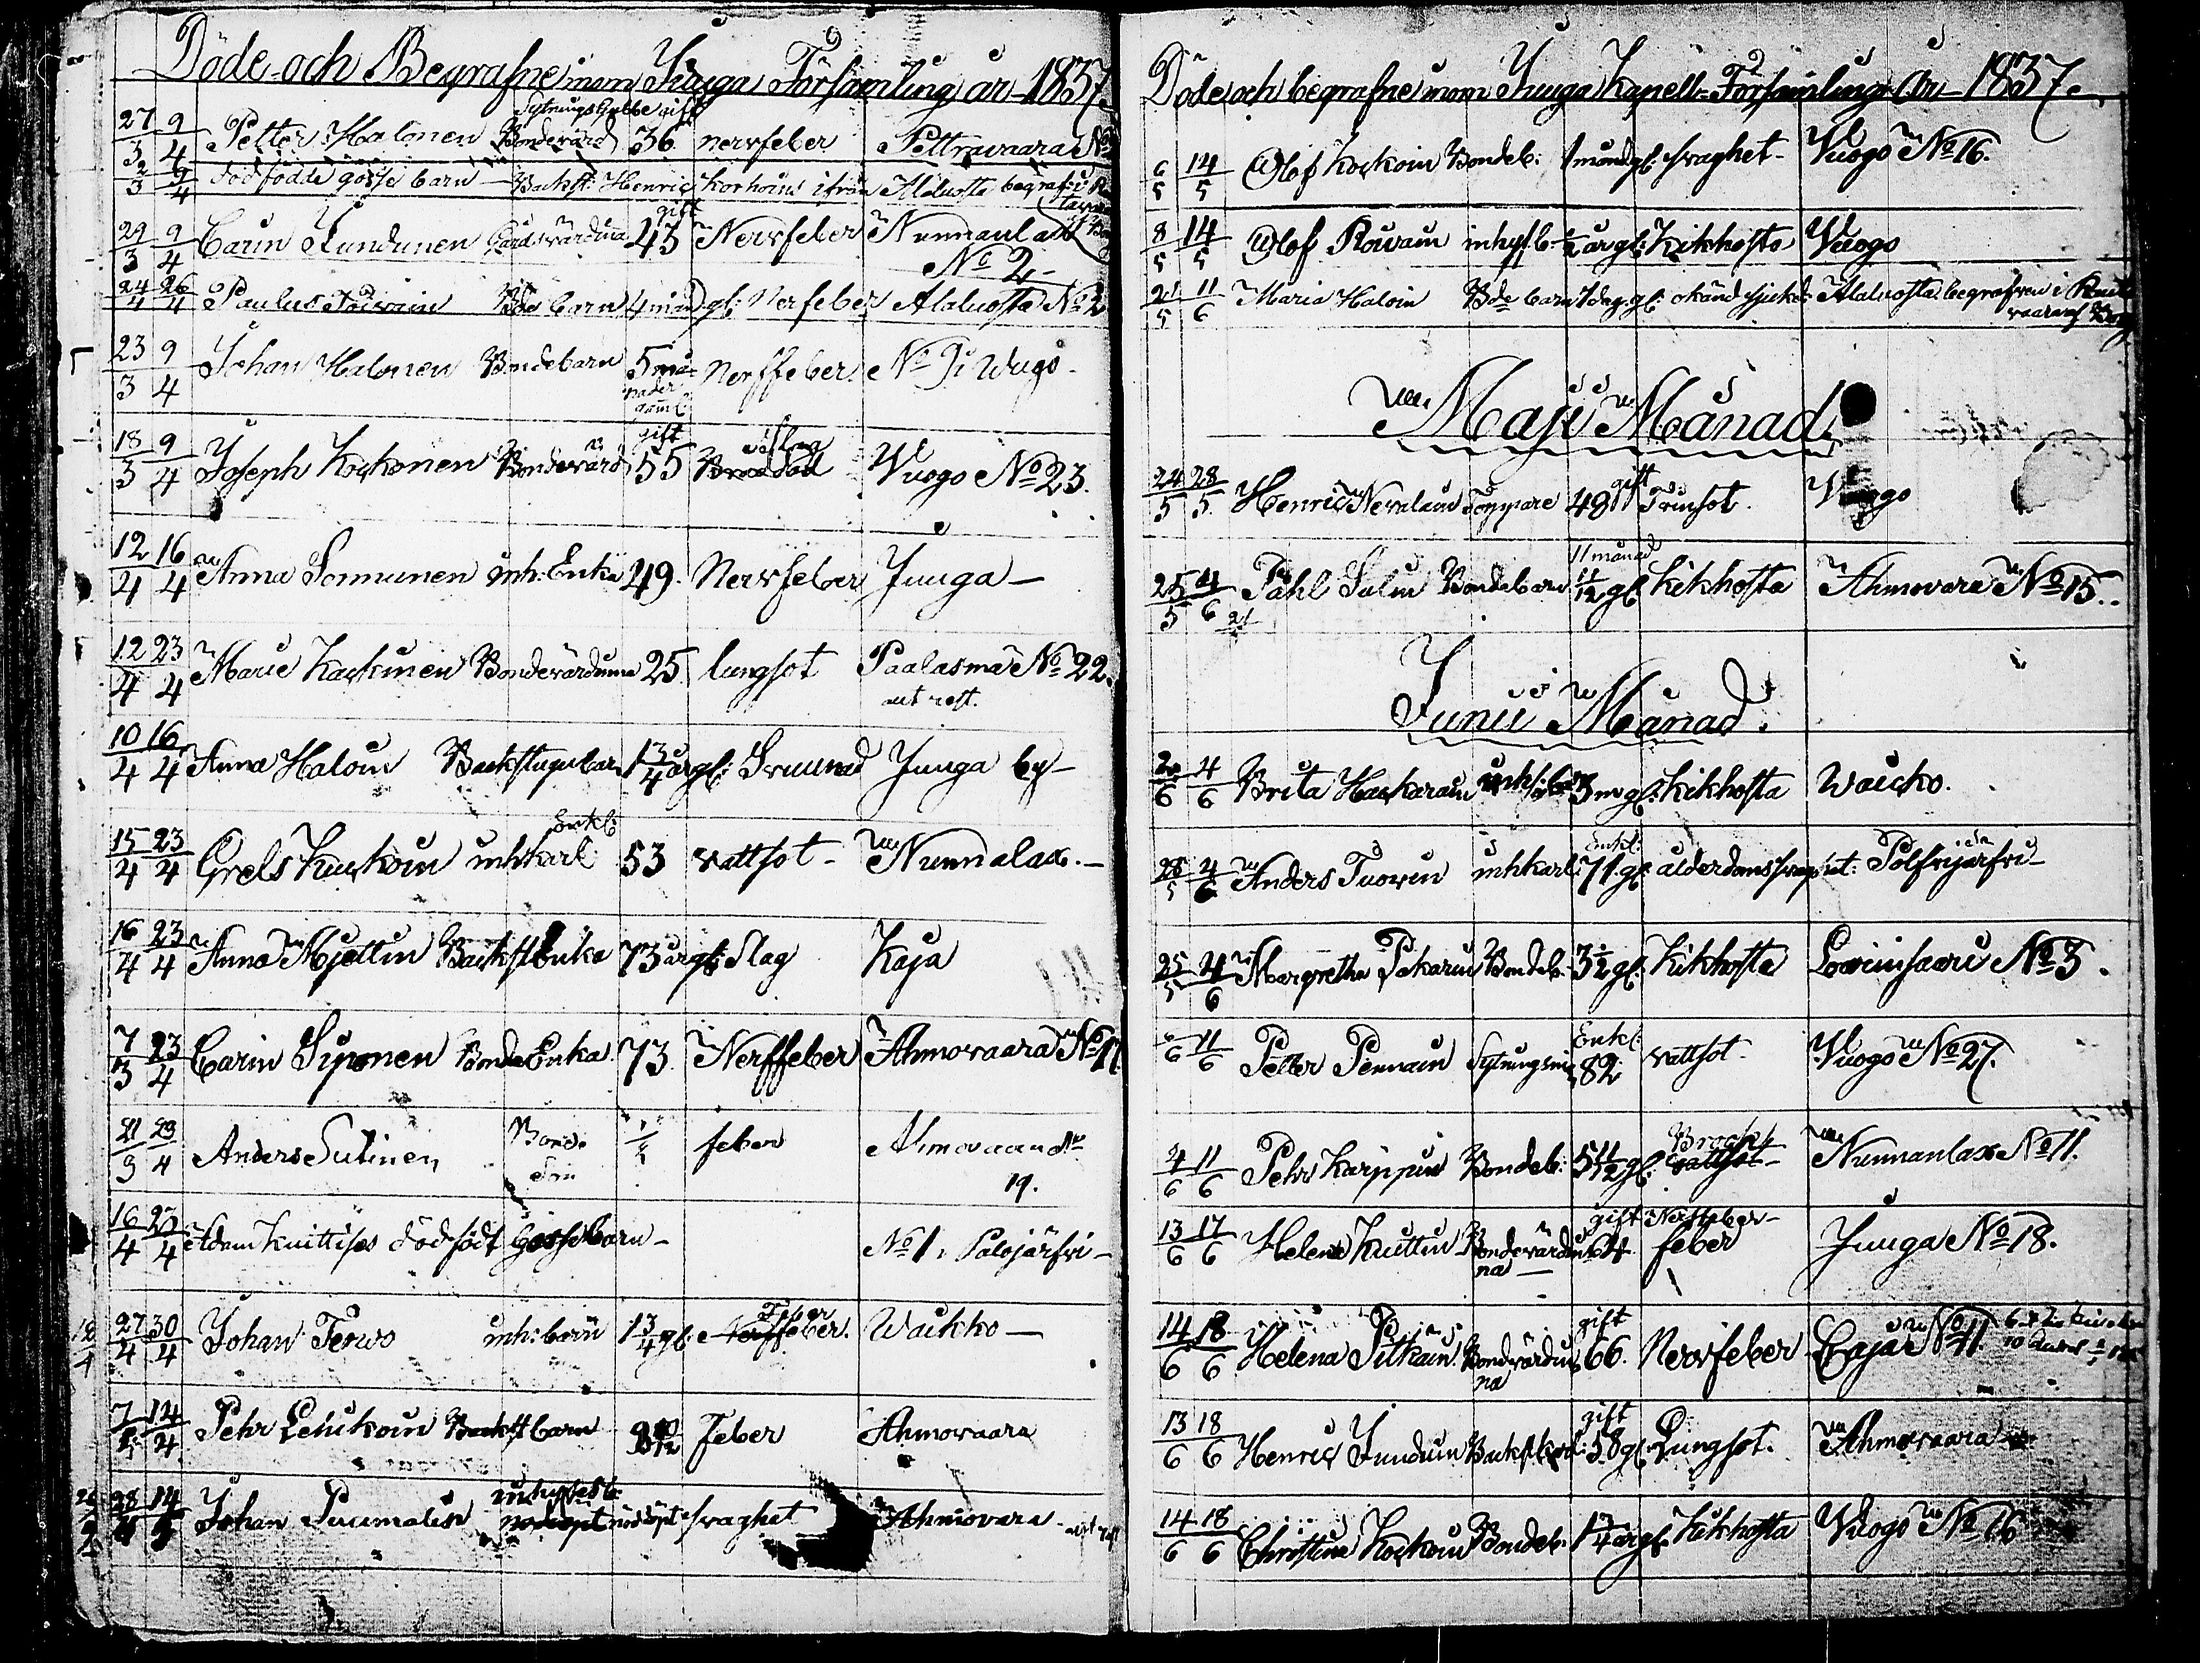 Döde och Begrafne inom Juuga Församling år 1837.
27/3 9/4 Petter Halonen Bondevärd 36 nervfeber Pettravaara No
3/3 9/4 dödfödde gosse barn Backst: Henric Korhoins ifrån Alaluosta begraf: i
29/3 9/4 Carin Tundunen Gårdsvärdina gift 43 Nervfeber Nunnanlax
No 2
24/4 26/4 Paulus Bde barn 4 mån gl: Nerfeber Alaluosta No 2
23/3 9/4 Johan Halonen Bondebarn 5 må-
nader
gaml:
Nerffeber No 9 i Wugo
18/3 9/4 Joseph Kockonen Bondevärd gift 55 Slag Vuogo No 23.
12/4 16/4 Anna Sormunen inh: Enka 49. Nervfeber Juuga
12/4 23/4 Marie Kackinen Bondevärdinna 25 lungsot Paalasma No 22.
10/4 16/4 Anna Haloin Backstugubarn 1 3/4 årgl: Juuga by
15/4 23/4 Grels Kackoin inhkarl Enkl: 53 vattsot Nunnalax.
16/4 23/4 Anna Mjettin Backst Enka 73 årgl: Slag Kaja
7/3 23/4 Carin Siponen Bonde Enka 73 Nerffeber Ahmovaara No 11
21/3 23/4 Anders Sutinen Bonde
Son feber Ahmovaara No
19.
16/4 23/4 Adam Kuittises dödfödt Gossebarn No 1. Polojärfvi
27/4 30/4 Johan Terwo inh: barn 1 3/4 gl: Nerffeber Feber Waikko
7/ 14/4 Pehr Lehikoin Backst barn Feber Ahmovaara
Johan Puumalain inhyses b: nödöpt svaghet Ahmovara
Döde och begrafne inom Juuga Kapell-Församling År 1837.
6/5 14/5 Olof Kockoin Bondeb: 1 månd gl: svaghet Vuogo No 16.
8/5 14/5 Olof Rowain inhys b: 1/2 år gl: Kikhosta Vuogo
21/5 11/6 Maria Haloin Bde barn 7 dag: gl: okänd sjukd: Alaluosta begrafven i
Maji Månad
24/5 28/5 Henric Nevalain Torppare 48 gift Tvinsot. Vuogo
25/5 4/6 Påhl Salin Bondebarn 11 månad 11/12 gl Kikhosta Ahmovara No 15.
Junii Månad
2/6 4/6 Brita Hackarain inh: b: 3 m gl: Kikhosta Waicko.
28/5 4/6 Anders Tuovin inhkarl Enkl: 71 gl: ålderdomssvaghet: Polfvijärfvi
25/5 4/6 Margretha Pakarin Bondeb: 3 1/2 gl: Kikhosta Lovinsaari No 3.
/6 11/6 Petter Pennain Sytningsm Enkl: 82 vattsot Vuogo No 27.
4/6 11/6 Pehr Karppin Bondeb: 5 1/2 gl: Bråck vattsot Nunnanlax No 11.
13/6 17/6 Helena Kuittin Bondevärdin-
na gift 64 Nerffeber feber Juuga No 18.
14/6 18/6 Helena Pitkäin Bondevärdin-
na gift 66. Nervfeber Cajais No 11.
13/6 18/6 Henric Tundun Backstkarl gift 58 gl: Lungsot. Ahmovaara
14/6 18/6 Christina Kockoin Bondeb: 1 1/4 årgl: Kikhosta Vuogo No 16